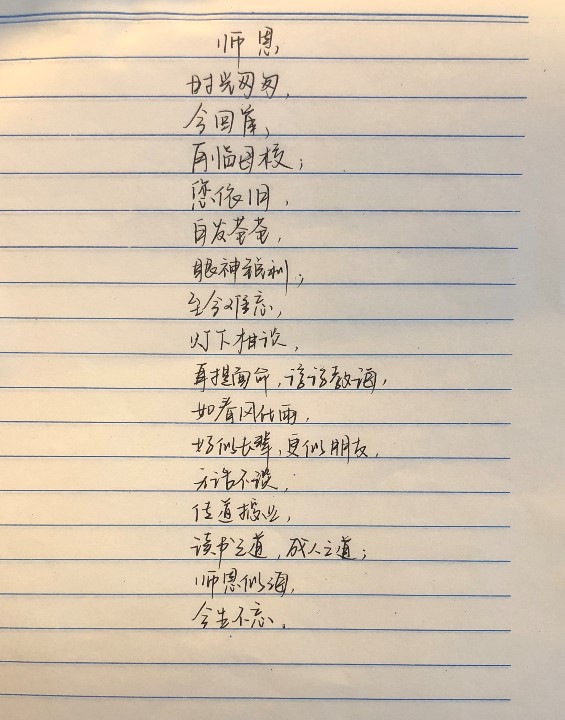 师恩
时光匆匆,
今回首,
再临母校;
您依旧,
白发苍苍,
眼神锐利;
至今难忘,
灯下相谈,
耳提面命,谆谆教诲,
如春风化雨,
好似长辈,更似朋友,
无话不谈;
传道授业,
读书之道,成人之道;
师恩似海,
今生不忘。